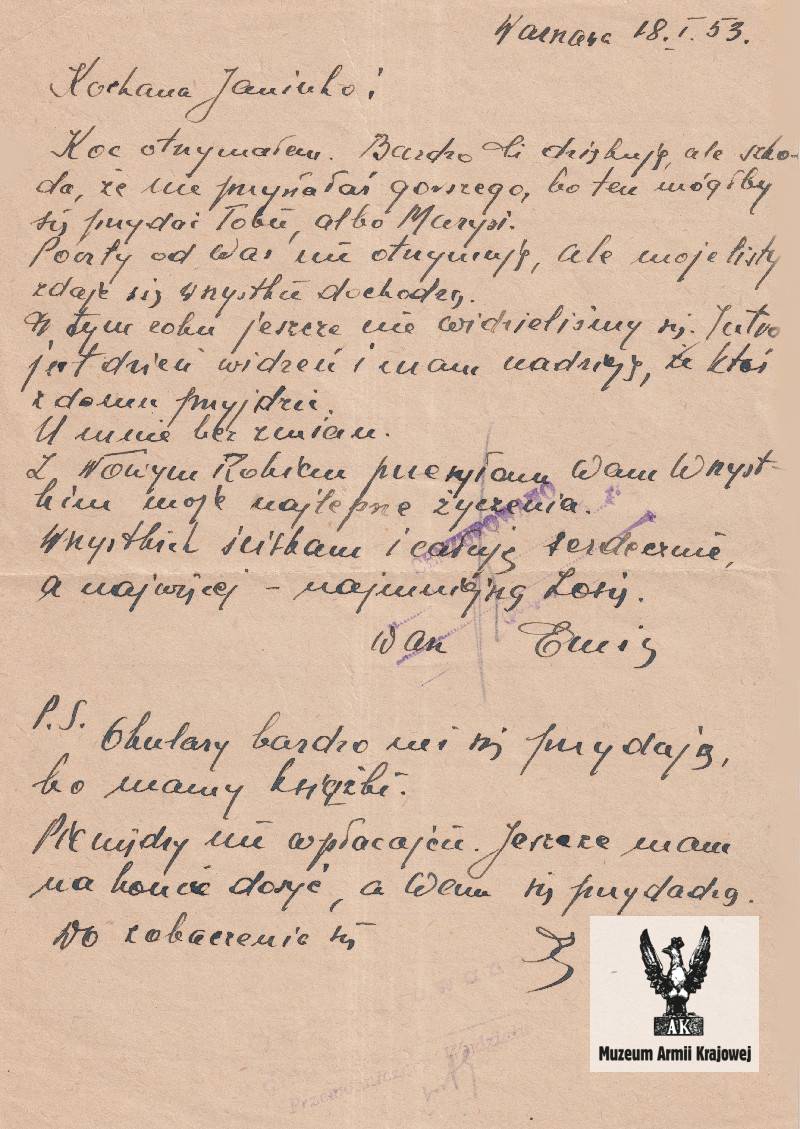 Warszawa 18.I.53.
Kochana Janinko!
Koc otrzymałem. Bardzo Ci dziękuję, ale szko-
da, że nie przysłałaś gorszego, bo ten mógłby
się przydać Tobie, albo Marysi.
Poczty od Was nie otrzymuję, ale moje listy
zdaje się wszystkie dochodzą.
W tym roku jeszcze nie widzieliśmy się. Jutro
jest dzień widzeń i mam nadzieję, że ktoś
z domu przyjdzie.
U mnie bez zmian.
Z Nowym Rokiem przesyłam Wam Wszyst-
kim moje najlepsze życzenia.
Wszystkich ściskam i całuję serdecznie,
a najwięcej – najmniejszą Zosię.
Wasz
P.S. Okulary bardzo mi się przydają,
bo mamy książki.
Pieniędzy nie wpłacajcie. Jeszcze mam
na koncie dosyć, a Wam się przydadzą.
Do zobaczenia się
OCENZUROWANO
AK
Muzeum Armii Krajowej